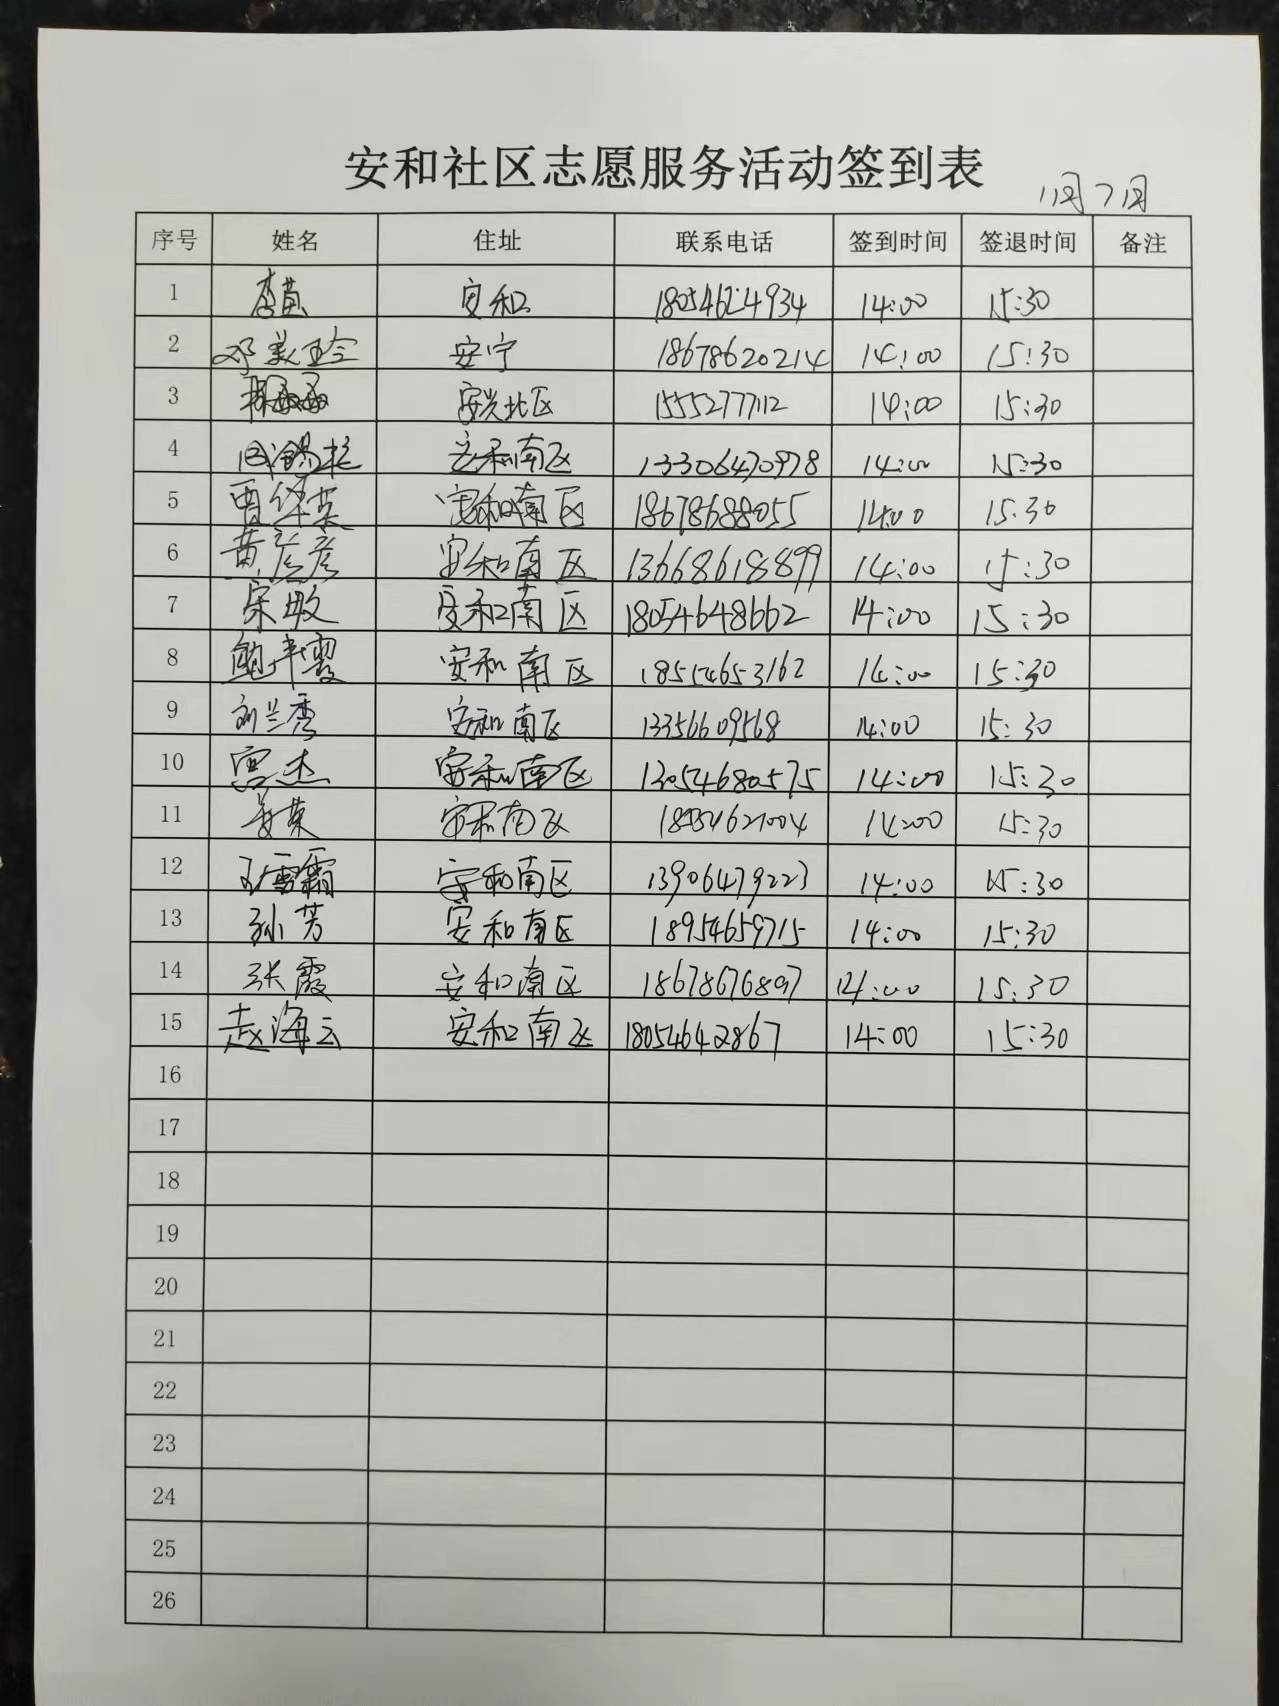 安和社区志愿服务活动签到表
11月7日
序号 姓名 住址 联系电话 签到时间 签退时间 备注
1 李苗 安和 18054624934 14:00 15:30
2 邓美玲 安宁 18678620214 14:00 15:30
3 安兴北区 15552777112 14:00 15:30
4 安和南区 13306470978 14:00 15:30
5 安和南区 18678688055 14:00 15:30
6 黄彦彦 安和南区 13668618899 14:00 15:30
7 宋敏 安和南区 18054648662 14:00 15:30
8 安和南区 18554653162 14:00 15:30
9 刘兰秀 安和南区 13356609568 14:00 15:30
10 宫杰 安和南区 13054680575 14:00 15:30
11 姜英 安和南区 14:00 15:30
12 王雪霜 安和南区 13906479223 14:00 15:30
13 孙芳 安和南区 18954659715 14:00 15:30
14 张霞 安和南区 18678676897 14:00 15:30
15 赵海云 安和南区 18054642867 14:00 15:30
16
17
18
19
20
21
22
23
24
25
26